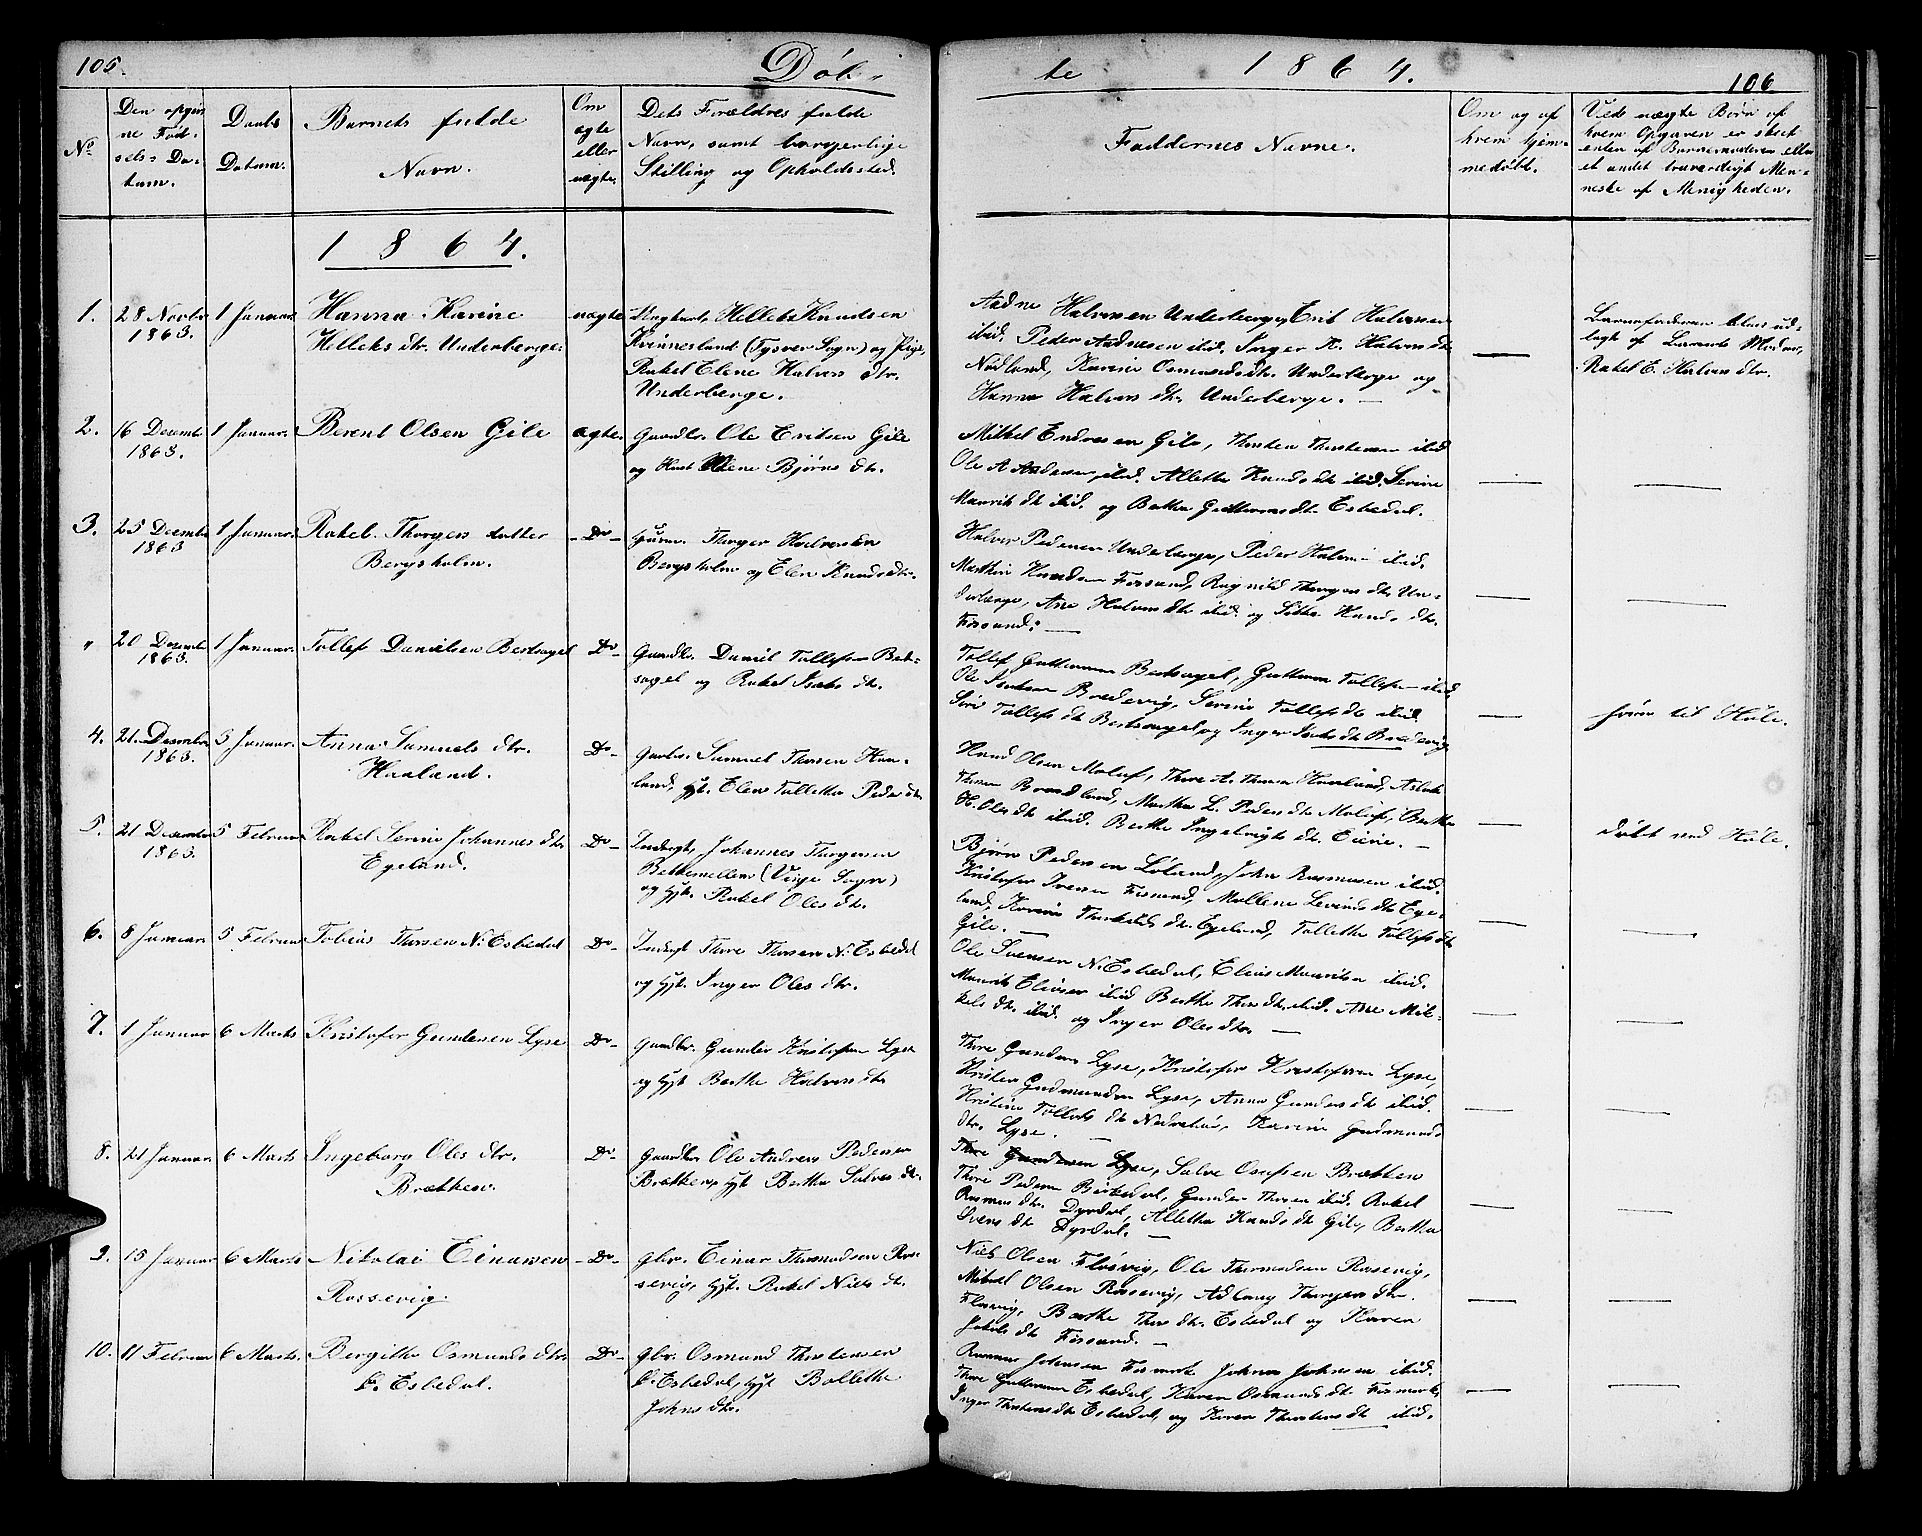 105.
Døb-
te
1864.
106
No.
Den opgiv
ne Fød-
sels-Da-
tum.
Daabs
Datum.
Barnets fulde
Navn.
Om
ægte
eller
uægte.
Dets Forældres fulde
Navn, samt borgerlige
Stilling og Opholdssted.
Faddernes Navne.
Om og af
hvem hjem-
medøbt.
Ved uægte Børn af
hvem Opgaven er skeet
enten af Barnemoderen eller
et andet troværdigt Men-
neske af Menigheden.
1864.
1.
28 Novbr
1863.
1 Januar.
Hanna Karine
Helleks dtr. Underberge.
uægte
Ungkarl, Hellek Knudsen
Kvinnesland (Tysvær Sogn) og Pige,
Rakel Elene Halvors dtr.
Underberge.
Aadne Halvorsen Underberge, Erik Halvorsen
ibid. Peder Andresen ibid. Inger K. Halvors dtr
Nødland, Karine Osmunds dtr. Underberge og
Hanna Halvors dtr. Underberge.
Barnefaderen blev ud-
lagt af Barnets Moder,
Rakel E. Halvors dtr.
2.
16 Decembr
1863.
1 Januar.
Berent Olsen Gile
ægte.
Gaardbr. Ole Eriksen Gile
og Hust. Elene Bjørns dtr.
Mikkel Endresen Gile, Thorsten Thorstensen ibid
Ole A Andersen, ibid. Allethe Knuds dt ibid. Serine
Maurits dt ibid. og Berthe Guttorms dt. Esbedal.
3.
25 Decembr
1863
1 Januar.
Rakel Thorgers datter
Bergsholm.
- Do -
Huusm. Thorger Halvorsen
Bergsholm og Elen Knuds dtr.
Halvor Pedersen Underberge, Peder Halvors- ibid.
Marthin Knudsen Forsand, Ragnild Thorgers dt. Un-
derberge, Ane Halvors dt ibid. og Sitha Knuds dtr.
Forsand.
"
20 Decembr
1863.
1 Januar.
Tollef Danielsen Bertsagel
Do -
Gaardbr. Daniel Tollefsen Bert-
sagel og Rakel Isaks dtr.
Tollef Guttormsen Bertsagel, Guttorm Tollefsen ibid.
Ole Isaksen Bredevig, Serine Tollefs dt ibid.
Siri Tollefs dt Bertsagel og Inger Isaks dt Bredevig
hører til Høle.
4.
21 Decembr
1863.
5 Januar.
Anna Samuels dtr.
Haaland.
Do -
Gaardbr. Samuel Thorsen Haa-
land, Hst. Elen Tollette Peders dtr.
Knud Olsen Moluf, Thore A. Thorsen Haaland, Aslak
Thorsen Brandland, Marthe L. Peders dt Moluf, Berthe
H. Ols dt ibid. Berthe Ingebrigts dt. Eiene.
døbt ved Høle.
5.
21 Decembr
1863.
5 Februar
Rakel Serine Johannes dtr.
Egeland.
Do -
Inderst, Johannes Thorgersen
Bekkemellem (Vige Sogn)
og Hst. Rakel Oles dtr.
Bjørn Pedersen Løland, John Rasmusen ibid.
Kristofer Iversen Forsand, Mallene Levords dt. Ege-
land, Karine Thorkilds dt. Egeland, Tollette Tollefs dt.
Gile.
6.
8 Januar.
5 Februar
Tobias Thorsen N. Esbedal
Do -
Inderst Thore Thorsen N. Esbedal
og Hst. Inger Oles dtr.
Ole Svensen N. Esbedal, Elias Mauritsen ibid.
Maurits Eliasen ibid Berthe Thors dt. ibid. Ane Mik-
kels dt. ibid. og Inger Oles dtr.
7.
1 Januar
6 Marts
Kristofer Gundersen Lyse
Do -
Gaardbr. Gunder Kristofersen Lyse
og Hst Berthe Halvors dtr
Thore Gundersen Lyse, Kristofer Kristofersen Lyse,
Kristen Gudmundsen Lyse, Anna Gunders dt ibid.
Kristine Tollefs dt Nedrebø, Karine Gudmunds
dtr. Lyse.
8.
21 Januar.
6 Marts
Ingeborg Oles dtr.
Brækken.
Do -
Gaardbr. Ole Andreas Pedersen
Brækken, Hst Berthe Salves dtr.
Thore Gundersen Lyse, Salve Osufsen Brækken
Thore Pedersen Birkedal, Gunder Thorsen ibid. Rakel
Rasmus dtr. Dyrdal, Allethe Knuds dt Gile, Berthe
Svens dt Dyrdal.
9.
15 Januar
6 Marts
Nikolai Einarsen
Rossevig.
- Do -
Gbr. Einar Thormodsen Ros-
sevig, Hst. Rakel Niels dtr.
Niels Olsen Fløsvig, Ole Thormodsen Rossevig,
Mikkel Olsen Rossevig, Adlaug Thorgers dtr.
Fløsvig, Berthe Thors dt. Esbedal og Karen
Jakobs dt Forsand.
10.
11 Februar
6 Marts.
Bergitte Osmunds dtr.
Esbedal.
Do -
Gbr. Osmund Thorstensen
Esbedal, Hst Bollette
Johns dtr.
Rasmus Johnsen Fosmark John Johnsen ibid.
Thore Guttormsen Esbedal, Karen Osmunds dt Fosmark,
Inger Thorstens dt Esbedal, og Karen Thorstens dt ibid.